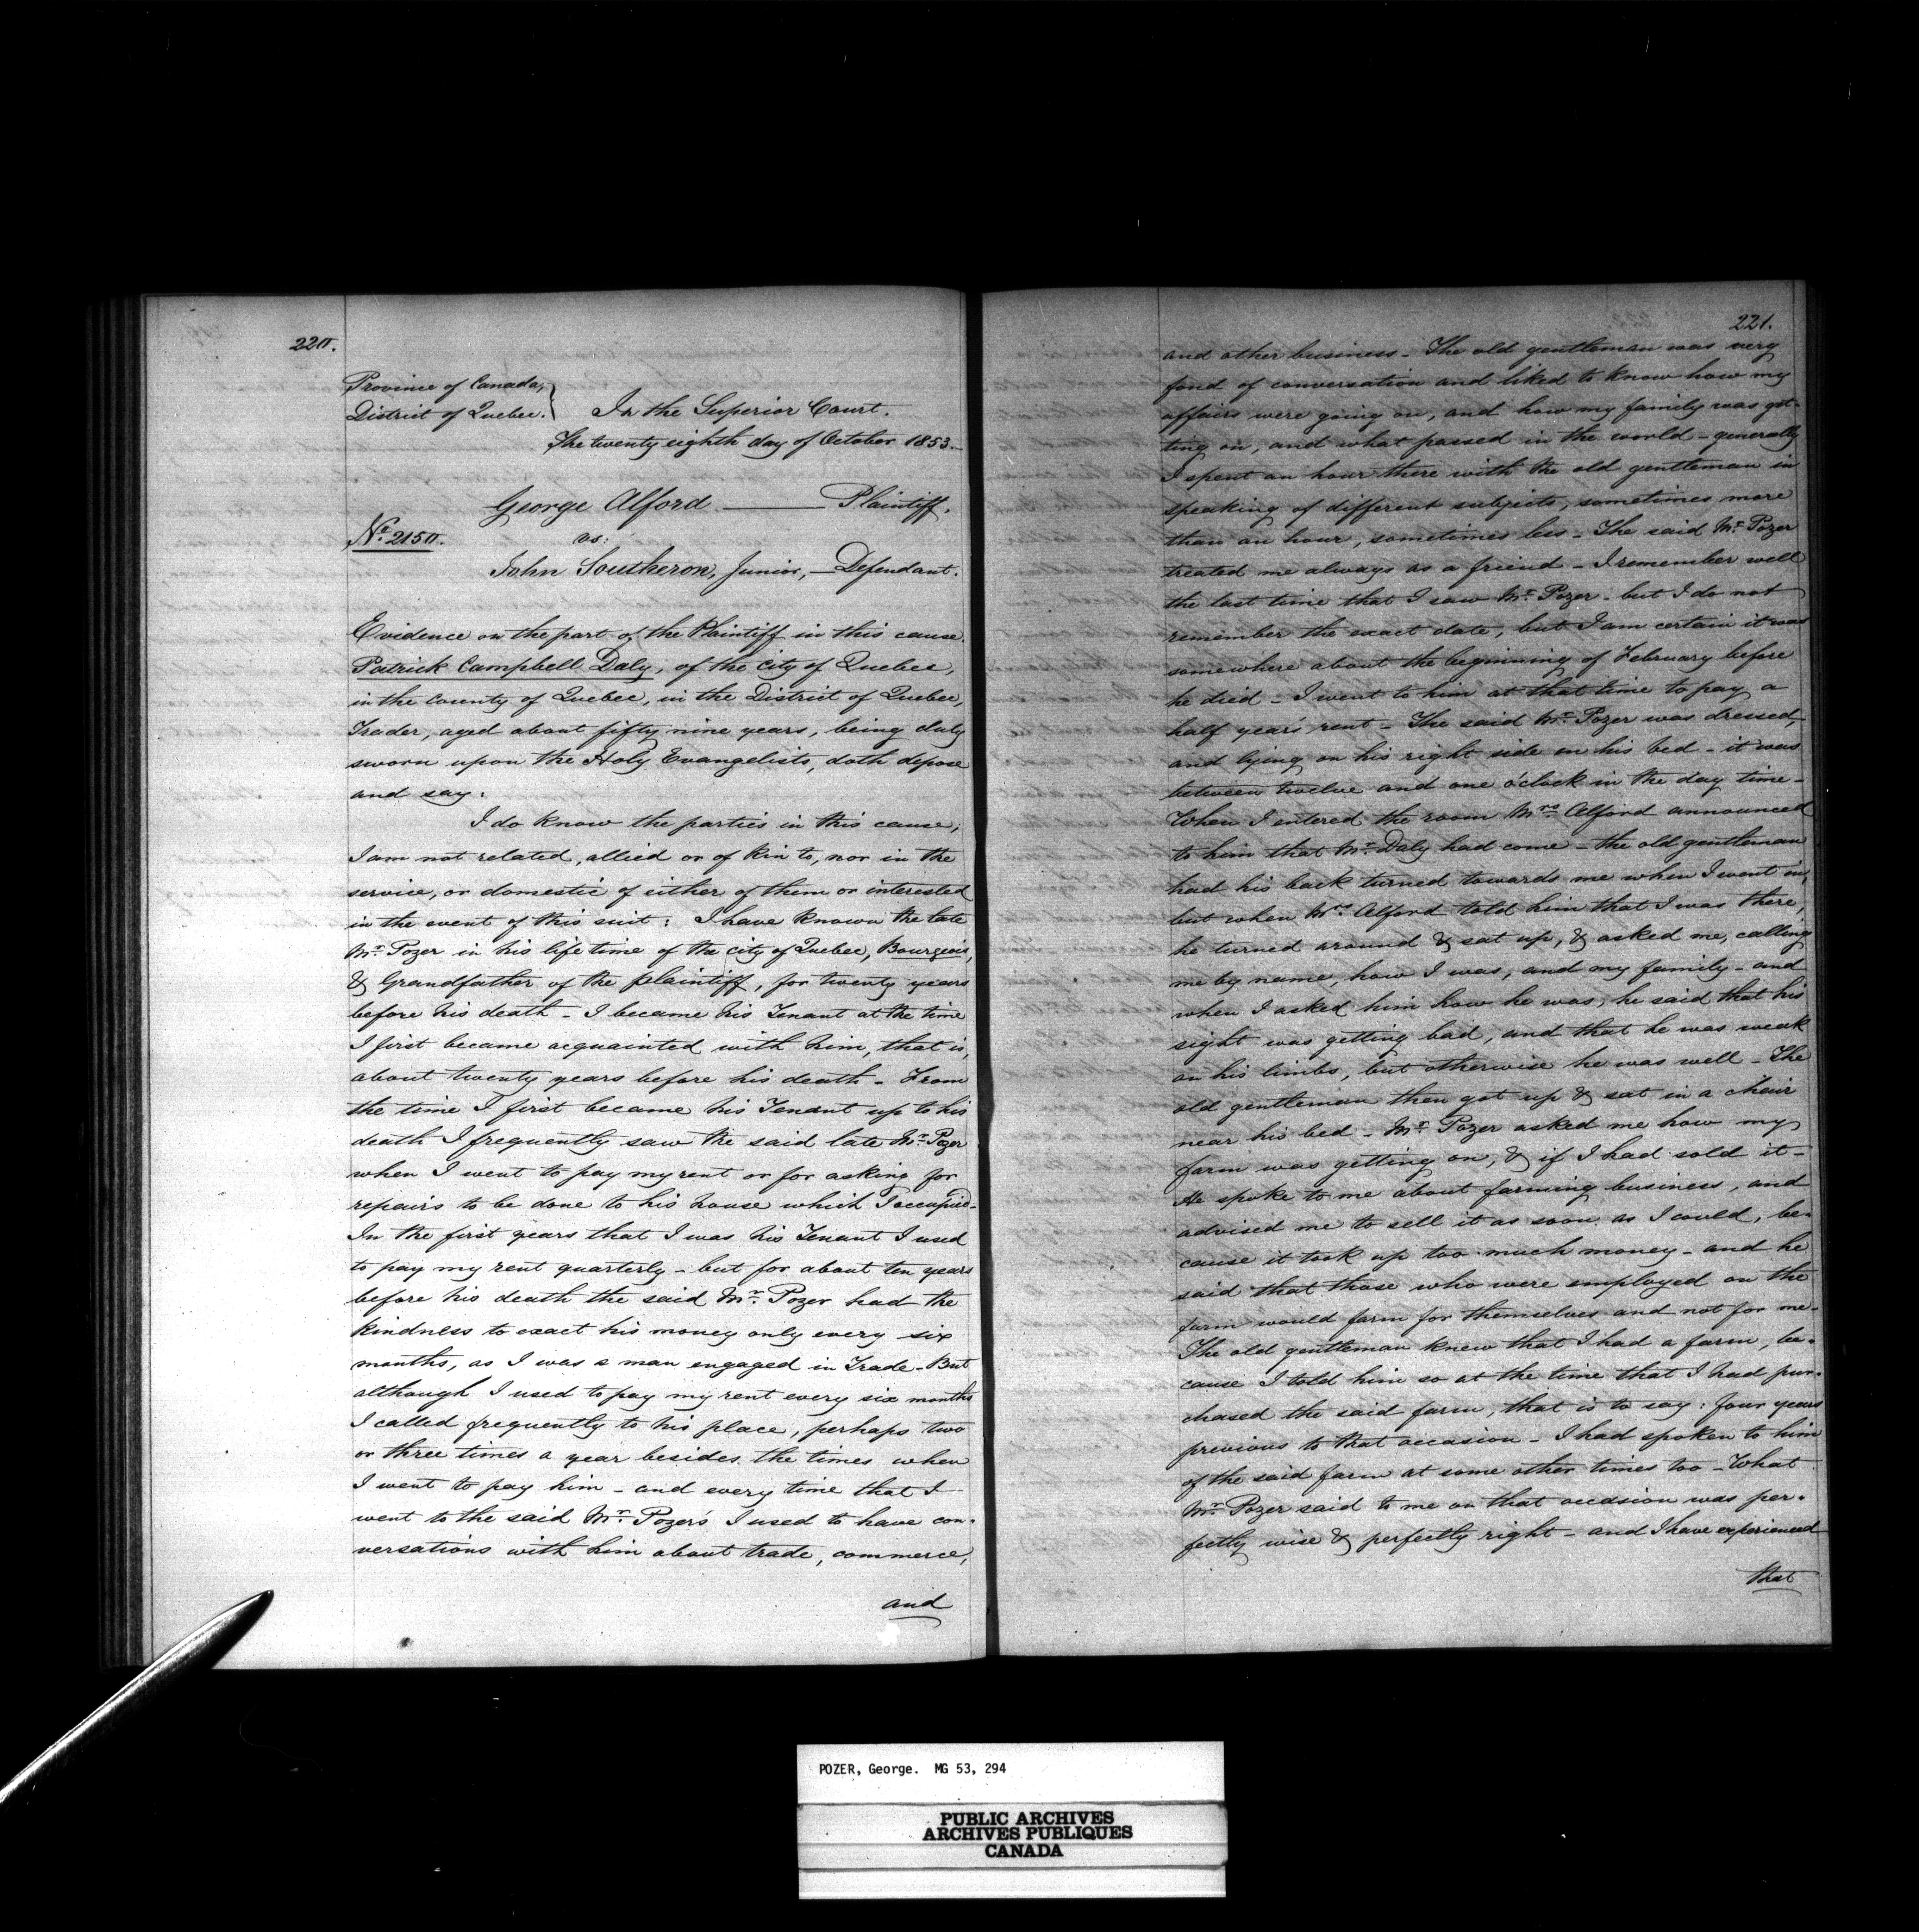 220.
Province of Canada,
District of Quebec. } In the Superior Court.
The twenty eighth day of October 1853.
George Alford — Plaintiff,
No. 2150. vs:
John Southeron, Junior, — Defendant.
Evidence on the part of the Plaintiff in this cause.
Patrick Campbell Daly, of the City of Quebec,
in the County of Quebec, in the District of Quebec,
Trader, aged about fifty nine years, being duly
sworn upon the Holy Evangelists, doth depose
and say:
I do know the parties in this cause;
I am not related, allied or of kin to, nor in the
service, or domestic of either of them or interested
in the event of this suit: I have known the late
Mr. Pozer in his life time of the city of Quebec, Bourgeois,
& Grandfather of the plaintiff, for twenty years
before his death - I became his Tenant at the time
I first became acquainted with him, that is,
about twenty years before his death - From
the time I first became his Tenant up to his
death I frequently saw the said late Mr. Pozer
when I went to pay my rent or for asking for
repairs to be done to his house which I occupied -
In the first years that I was his Tenant I used
to pay my rent quarterly - but for about ten years
before his death the said Mr. Pozer had the
kindness to exact his money only every six
months, as I was a man engaged in Trade - But
although I used to pay my rent every six months
I called frequently to his place, perhaps two
or three times a year besides the times when
I went to pay him - and every time that I
went to the said Mr. Pozer's I used to have con-
versations with him about trade, commerce,
and
221.
and other business - The old gentleman was very
fond of conversation and liked to know how my
affairs were going on, and how my family was get-
ting on, and what passed in the world - generally
I spent an hour there with the old gentleman in
speaking of different subjects, sometimes more
than an hour, sometimes less - The said Mr. Pozer
treated me always as a friend - I remember well
the last time that I saw Mr. Pozer - but I do not
remember the exact date, but I am certain it was
somewhere about the beginning of February before
he died - I went to him at that time to pay a
half year's rent - The said Mr. Pozer was dressed,
and lying on his right side on his bed - it was
between twelve and one o'clock in the day time -
When I entered the room Mrs. Alford announced
to him that Mr. Daly had come - the old gentleman
had his back turned towards me when I went in,
but when Mrs. Alford told him that I was there,
he turned around & sat up, & asked me, calling
me by name, how I was, and my family - and
when I asked him how he was, he said that his
sight was getting bad, and that he was weak
on his limbs, but otherwise he was well - The
old gentleman then got up & sat in a chair
near his bed - Mr. Pozer asked me how my
farm was getting on, & if I had sold it -
He spoke to me about farming business, and
advised me to sell it as soon as I could, be-
cause it took up too much money - and he
said that those who were employed on the
farm would farm for themselves and not for me -
The old gentleman knew that I had a farm, be-
cause I told him so at the time that I had pur-
chased the said farm, that is to say: four years
previous to that occasion - I had spoken to him
of the said farm at some other times too - What
Mr. Pozer said to me on that occasion was per-
fectly wise & perfectly right - and I have experienced
that
POZER, George. MG 53, 294
PUBLIC ARCHIVES
ARCHIVES PUBLIQUES
CANADA